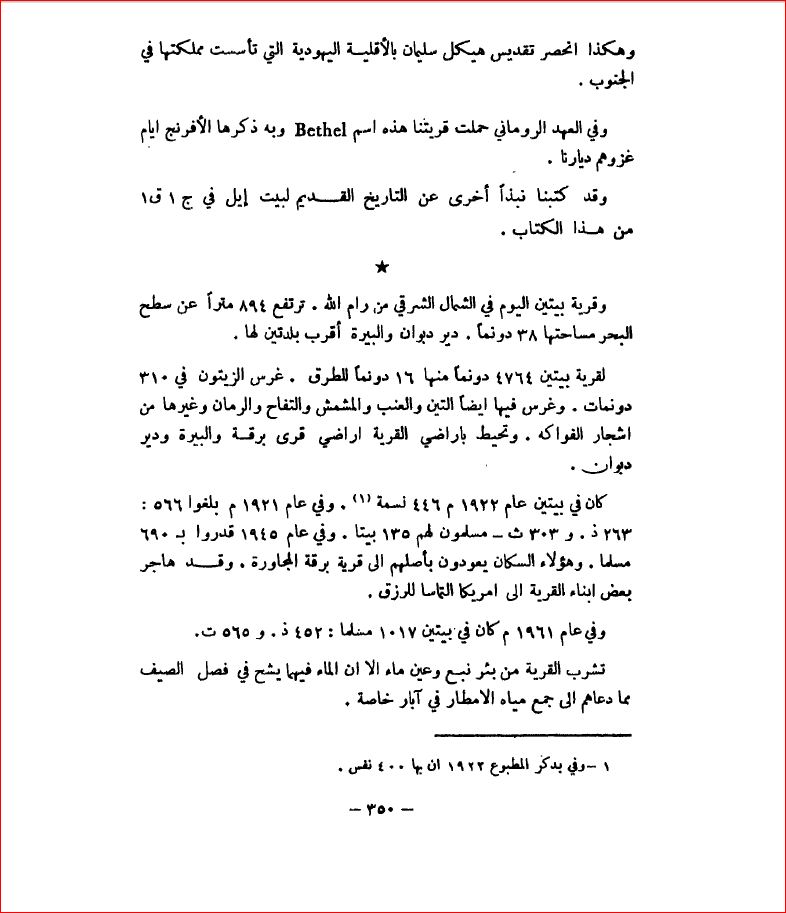 وهكذا انحصر تقديس هيكل سليمان بالأقلية اليهودية التي تأسست مملكتها في
الجنوب .
وفي العهد الروماني حملت قريتنا هذه اسم Bethel وبه ذكرها الأفرنج ايام
غزوهم ديارنا .
وقد كتبنا نبذاً أخرى عن التاريخ القديم لبيت إيل في ج ١ ق١
من هذا الكتاب .
★
وقرية بيتين اليوم في الشمال الشرقي من رام الله . ترتفع ٨٩٤ متراً عن سطح
البحر مساحتها ٣٨ دونماً . دير دبوان والبيرة أقرب بلدتين لها .
لقرية بيتين ٤٧٦٤ دونماً منها ١٦ دونماً للطرق . غرس الزيتون في ٣١٠
دونمات . وغرس فيها ايضاً التين والعنب والمشمش والتفاح والرمان وغيرها من
اشجار الفواكه . وتحيط باراضي القرية اراضي قرى برقة والبيرة ودير
دبوان .
كان في بيتين عام ١٩٢٢ م ٤٤٦ نسمة (١) . وفي عام ١٩٢١ م بلغوا ٥٦٦ :
٢٦٣ ذ . و ٣٠٣ ث – مسلمون لهم ١٣٥ بيتا . وفي عام ١٩٤٥ قدروا بـ ٦٩٠
مسلما . وهؤلاء السكان يعودون بأصلهم الى قرية برقة المجاورة . وقد هاجر
بعض ابناء القرية الى امريكا التماسا للرزق .
وفي عام ١٩٦١ م كان في بيتين ١٠١٧ مسلما : ٤٥٢ ذ . و ٥٦٥ ت.
تشرب القرية من بئر نبع وعين ماء الا ان الماء فيهما يشح في فصل الصيف
مما دعاهم الى جمع مياه الامطار في آبار خاصة .
١ – وفي يدكر المطبوع ١٩٢٢ ان بها ٤٠٠ نفس .
– ٣٥٠ –